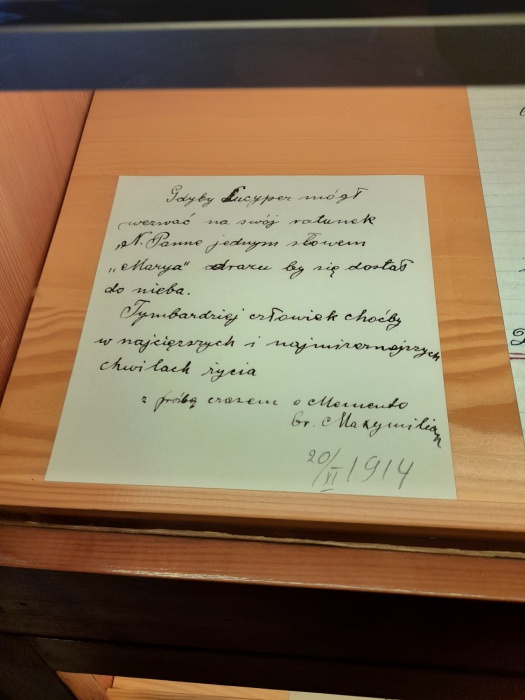 Gdyby Lucyper mógł
wezwać na swój ratunek
„N. Panne jednym słowem
„Marya" odrazu by się dostał
do nieba.
Tymbardziej człowiek choćby
w najcięższych i najmizerniejszych
chwilach życia
z prośbą czasem o Memento
br. Maxymilian
20/XI 1914